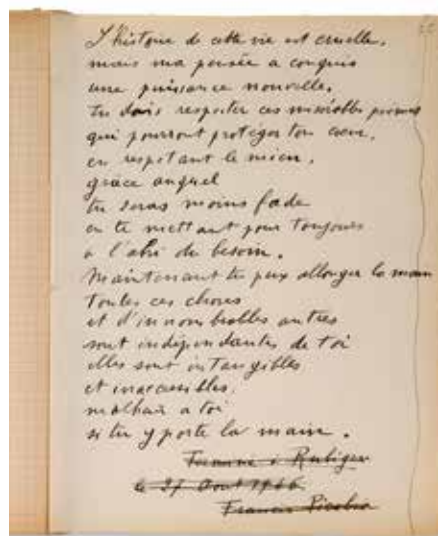 L'histoire de cette vie est cruelle,
mais ma pensée a conquis
une puissance nouvelle.
tu dois respecter ces misérables
qui pourront proteger ton cœur,
en respectant le mien,
grâce auquel
tu seras moins fade
en te mettant pour toujours
a l'abri du besoin.
Maintenant tu peux allonger la main
toutes ces choses
et d'innombrables autres
sont indépendantes de toi
elles sont intangibles
et inaccessibles.
malheur a toi
si tu y porte la main.
Terminé à Rubigen
le 27 Aout 1946
Francis Picabia